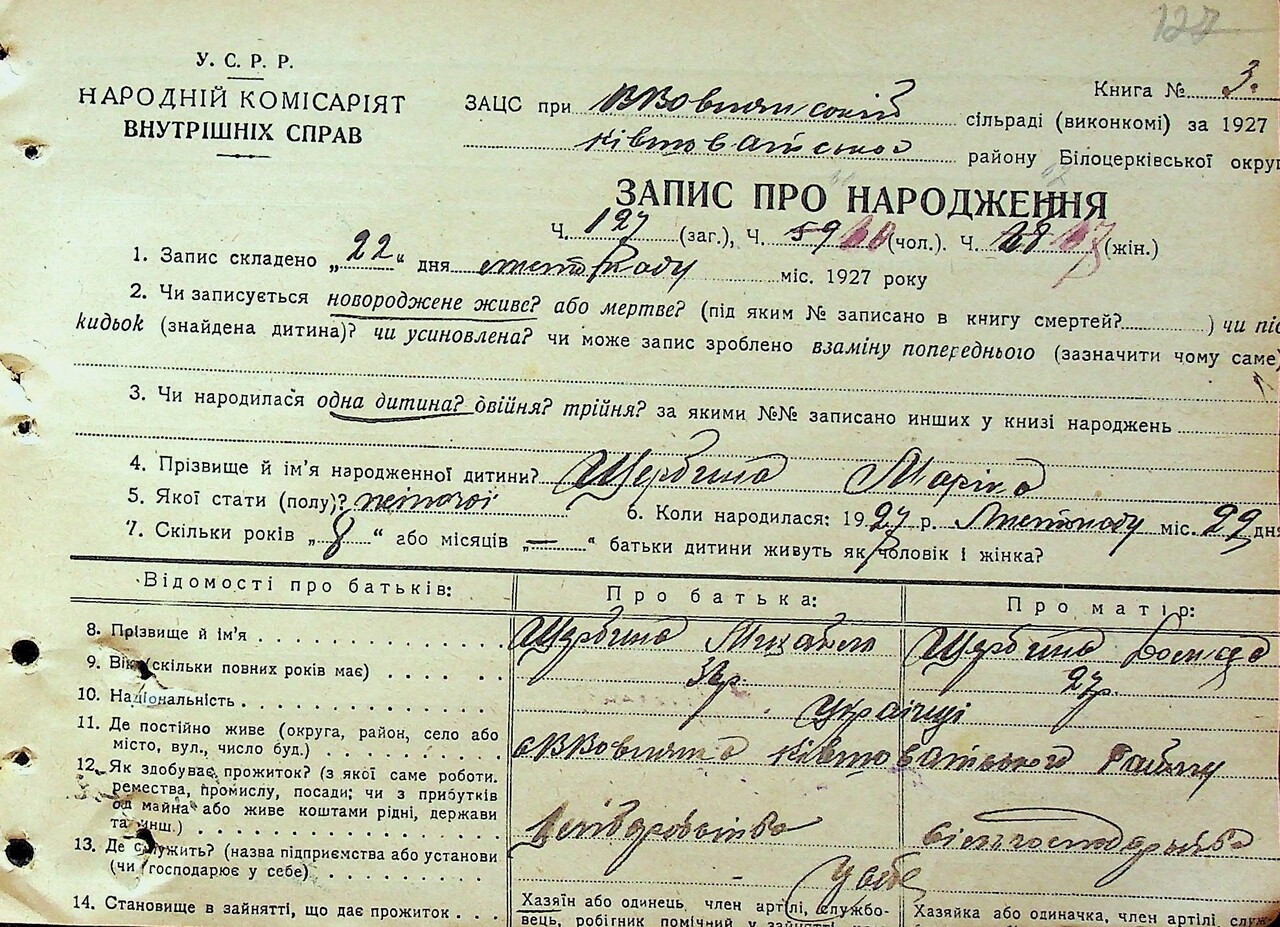 127
У. С. Р. Р.
НАРОДНІЙ КОМІСАРІЯТ
ВНУТРІШНІХ СПРАВ
Книга № 3.
ЗАЦС при сільраді (виконкомі) за 1927
району Білоцерківської округ
ЗАПИС ПРО НАРОДЖЕННЯ
Ч. 127 (заг.), Ч. 59 60 (чол.). Ч. 67 (жін.)
1. Запис складено „22“ дня листопаду міс. 1927 року
2. Чи записується новороджене живе? або мертве? (під яким № записано в книгу смертей? ) чи під
кидьок (знайдена дитина)? чи усиновлена? чи може запис зроблено взаміну попереднього (зазначити чому саме)
3. Чи народилася одна дитина? двійня? трійня? за якими №№ записано инших у книзі народжень
4. Прізвище й ім'я народженної дитини? Щербина Марія
5. Якої стати (полу)? жіночої 6. Коли народилася: 1927 р. Листопаду міс. 22 дня
7. Скільки років „8“ або місяців „—“ батьки дитини живуть як чоловік і жінка?
Відомості про батьків: Про батька: Про матір:
8. Прізвище й ім'я Щербина Михайло Щербина
9. Вік (скільки повних років має) 27р.
10. Національність Українці
11. Де постійно живе (округа, район, село або
місто, вул., число буд.) району
12. Як здобуває прожиток? (з якої саме роботи.
ремества, промислу, посади; чи з прибутків
од майна або живе коштами рідні, держави
та инш.)
13. Де служить? (назва підприємства або установи
(чи господарює у себе) У себе
14. Становище в зайнятті, що дає прожиток Хазяїн або одинець, член артілі, службо- Хазяйка або одиначка, член артілі, служ-
вець, робітник помічний у зайнятті